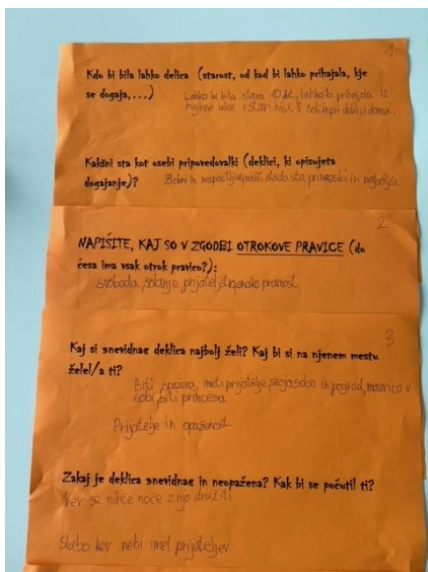 1
Kdo bi bila lahko deklica (starost, od kod bi lahko prihajala, kje
se dogaja,...) Lahko bi bila stara 10 let, lahko bi prihajala iz
majhne ulice v stari hiši. V šoli in pri deklici doma.
Kakšni sta kot osebi pripovedovalki (deklici, ki opisujeta
dogajanje)? Zlobni in nespoštljivi, mislita da sta princeski in najboljši
2
NAPIŠITE, KAJ SO V ZGODBI OTROKOVE PRAVICE (do
česa ima vsak otrok pravico?):
svoboda, šolanje, prijateljstvo, enakopravnost
3
Kaj si snevidna« deklica najbolj želi? Kaj bi si na njenem mestu
želel/a ti?
Biti opažena, imeti prijatelje, svojo sobo in pograd, mavrico v
sobi, biti princesa.
Prijatelje in opaženost
Zakaj je deklica snevidna« in neopažena? Kak bi se počutil ti?
Ker se nihče noče z njo družiti
Slabo ker nebi imel prijateljev